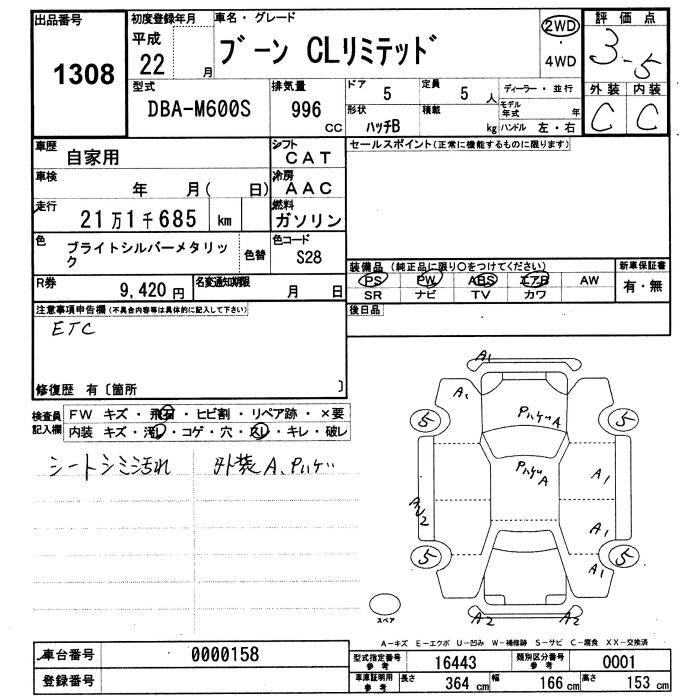 出品番号 初度登録年月 車名・グレード 評価点
1308 平成 22 月 ブーン CLリミテッド 2WD ・ 4WD 3-5
型式 排気量 ドア 定員 ディーラー・並行 外装 内装
DBA-M600S 996 cc 5 5 人 モデル年式 年 C C
形状 積載
ハッチB kg ハンドル 左・右
車歴 自家用 シフト CAT セールスポイント(正常に機能するものに限ります)
車検 年 月( 日) 冷房 AAC
走行 21万1千685 km 燃料 ガソリン
色 ブライトシルバーメタリック 色替 色コード S28
装備品(純正品に限り○をつけてください) 新車保証書
PS PW ABS エアB AW 有・無
SR ナビ TV カワ
R券 9,420円 名変通知期限 月 日
後日品
注意事項申告欄(不具合内容等は具体的に記入して下さい)
ETC
修復歴 有〔箇所 〕
検査員記入欄 FW キズ・飛石・ヒビ割・リペア跡・×要
内装 キズ・汚レ・コゲ・穴・スレ・キレ・破レ
シートシミ汚れ 外装A、Pハゲ
A1
A1
5 PハゲA 5
PハゲA
A1
AU2 A1
5 A1 5
A2 A2
スペア
A-キズ E-エクボ U-凹み W-補修跡 S-サビ C-腐食 XX-交換済
車台番号 0000158 型式指定番号 参考 16443 類別区分番号 参考 0001
登録番号 車庫証明用 参考 長さ 364 cm 幅 166 cm 高さ 153 cm